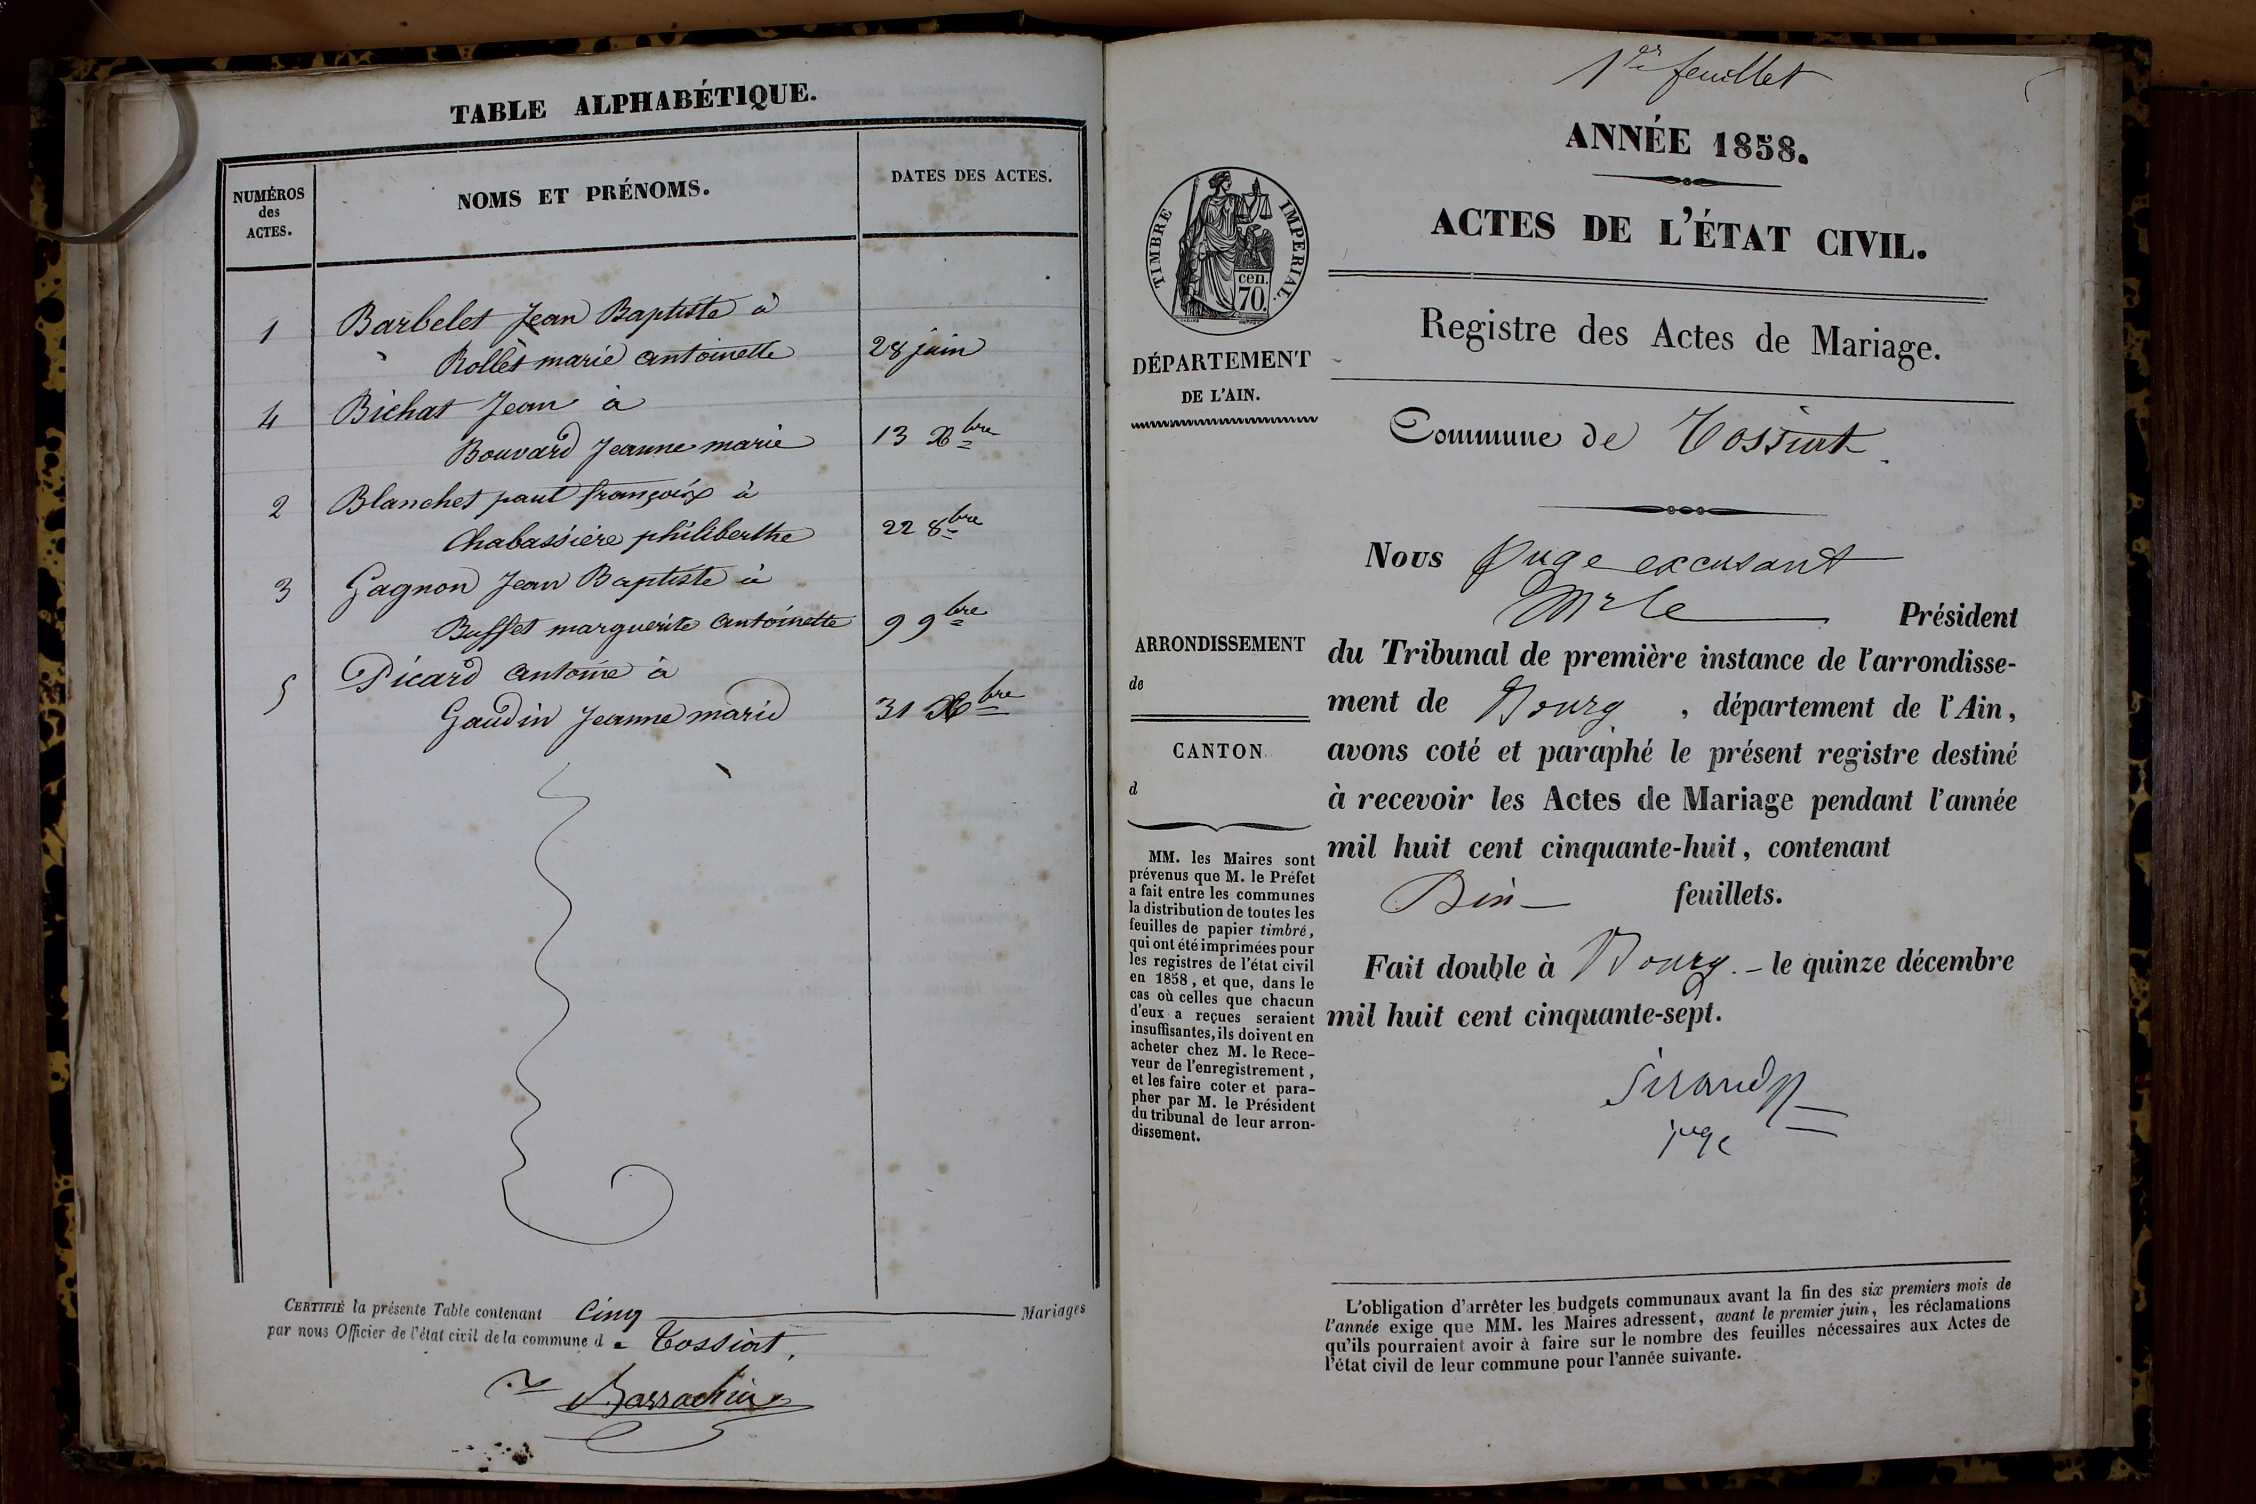 TABLE ALPHABÉTIQUE.
NUMÉROS
des
ACTES.
NOMS ET PRÉNOMS.
DATES DES ACTES.
1 Barbelet Jean Baptiste à
Rollet marie antoinette 28 juin
4 Bichat Jean à
Bouvard Jeanne marie 13 Xbre
2 Blanchet paul françois à
Chabassière philiberthe 22 8bre
3 Gagnon Jean Baptiste à
Buffet marguerite antoinette 9 9bre
5 Picard antoine à
Gaudin Jeanne marie 31 Xbre
CERTIFIÉ la présente Table contenant Cinq Mariages
par nous Officier de l'état civil de la commune de Tossiat.
1er feuillet
ANNÉE 1858.
ACTES DE L'ÉTAT CIVIL.
Registre des Actes de Mariage.
TIMBRE IMPERIAL.
cen.
70.
DÉPARTEMENT
DE L'AIN.
Commune de Tossiat
Nous Juge excusant
Mr le Président
ARRONDISSEMENT
de
CANTON
d
du Tribunal de première instance de l'arrondisse-
ment de Bourg, département de l'Ain,
avons coté et paraphé le présent registre destiné
à recevoir les Actes de Mariage pendant l'année
mil huit cent cinquante-huit, contenant
feuillets.
Fait double à Bourg. - le quinze décembre
mil huit cent cinquante-sept.
juge
MM. les Maires sont
prévenus que M. le Préfet
a fait entre les communes
la distribution de toutes les
feuilles de papier timbré,
qui ont été imprimées pour
les registres de l'état civil
en 1858, et que, dans le
cas où celles que chacun
d'eux a reçues seraient
insuffisantes, ils doivent en
acheter chez M. le Rece-
veur de l'enregistrement,
et les faire coter et para-
pher par M. le Président
du tribunal de leur arron-
dissement.
L'obligation d'arrêter les budgets communaux avant la fin des six premiers mois de
l'année exige que MM. les Maires adressent, avant le premier juin, les réclamations
qu'ils pourraient avoir à faire sur le nombre des feuilles nécessaires aux Actes de
l'état civil de leur commune pour l'année suivante.